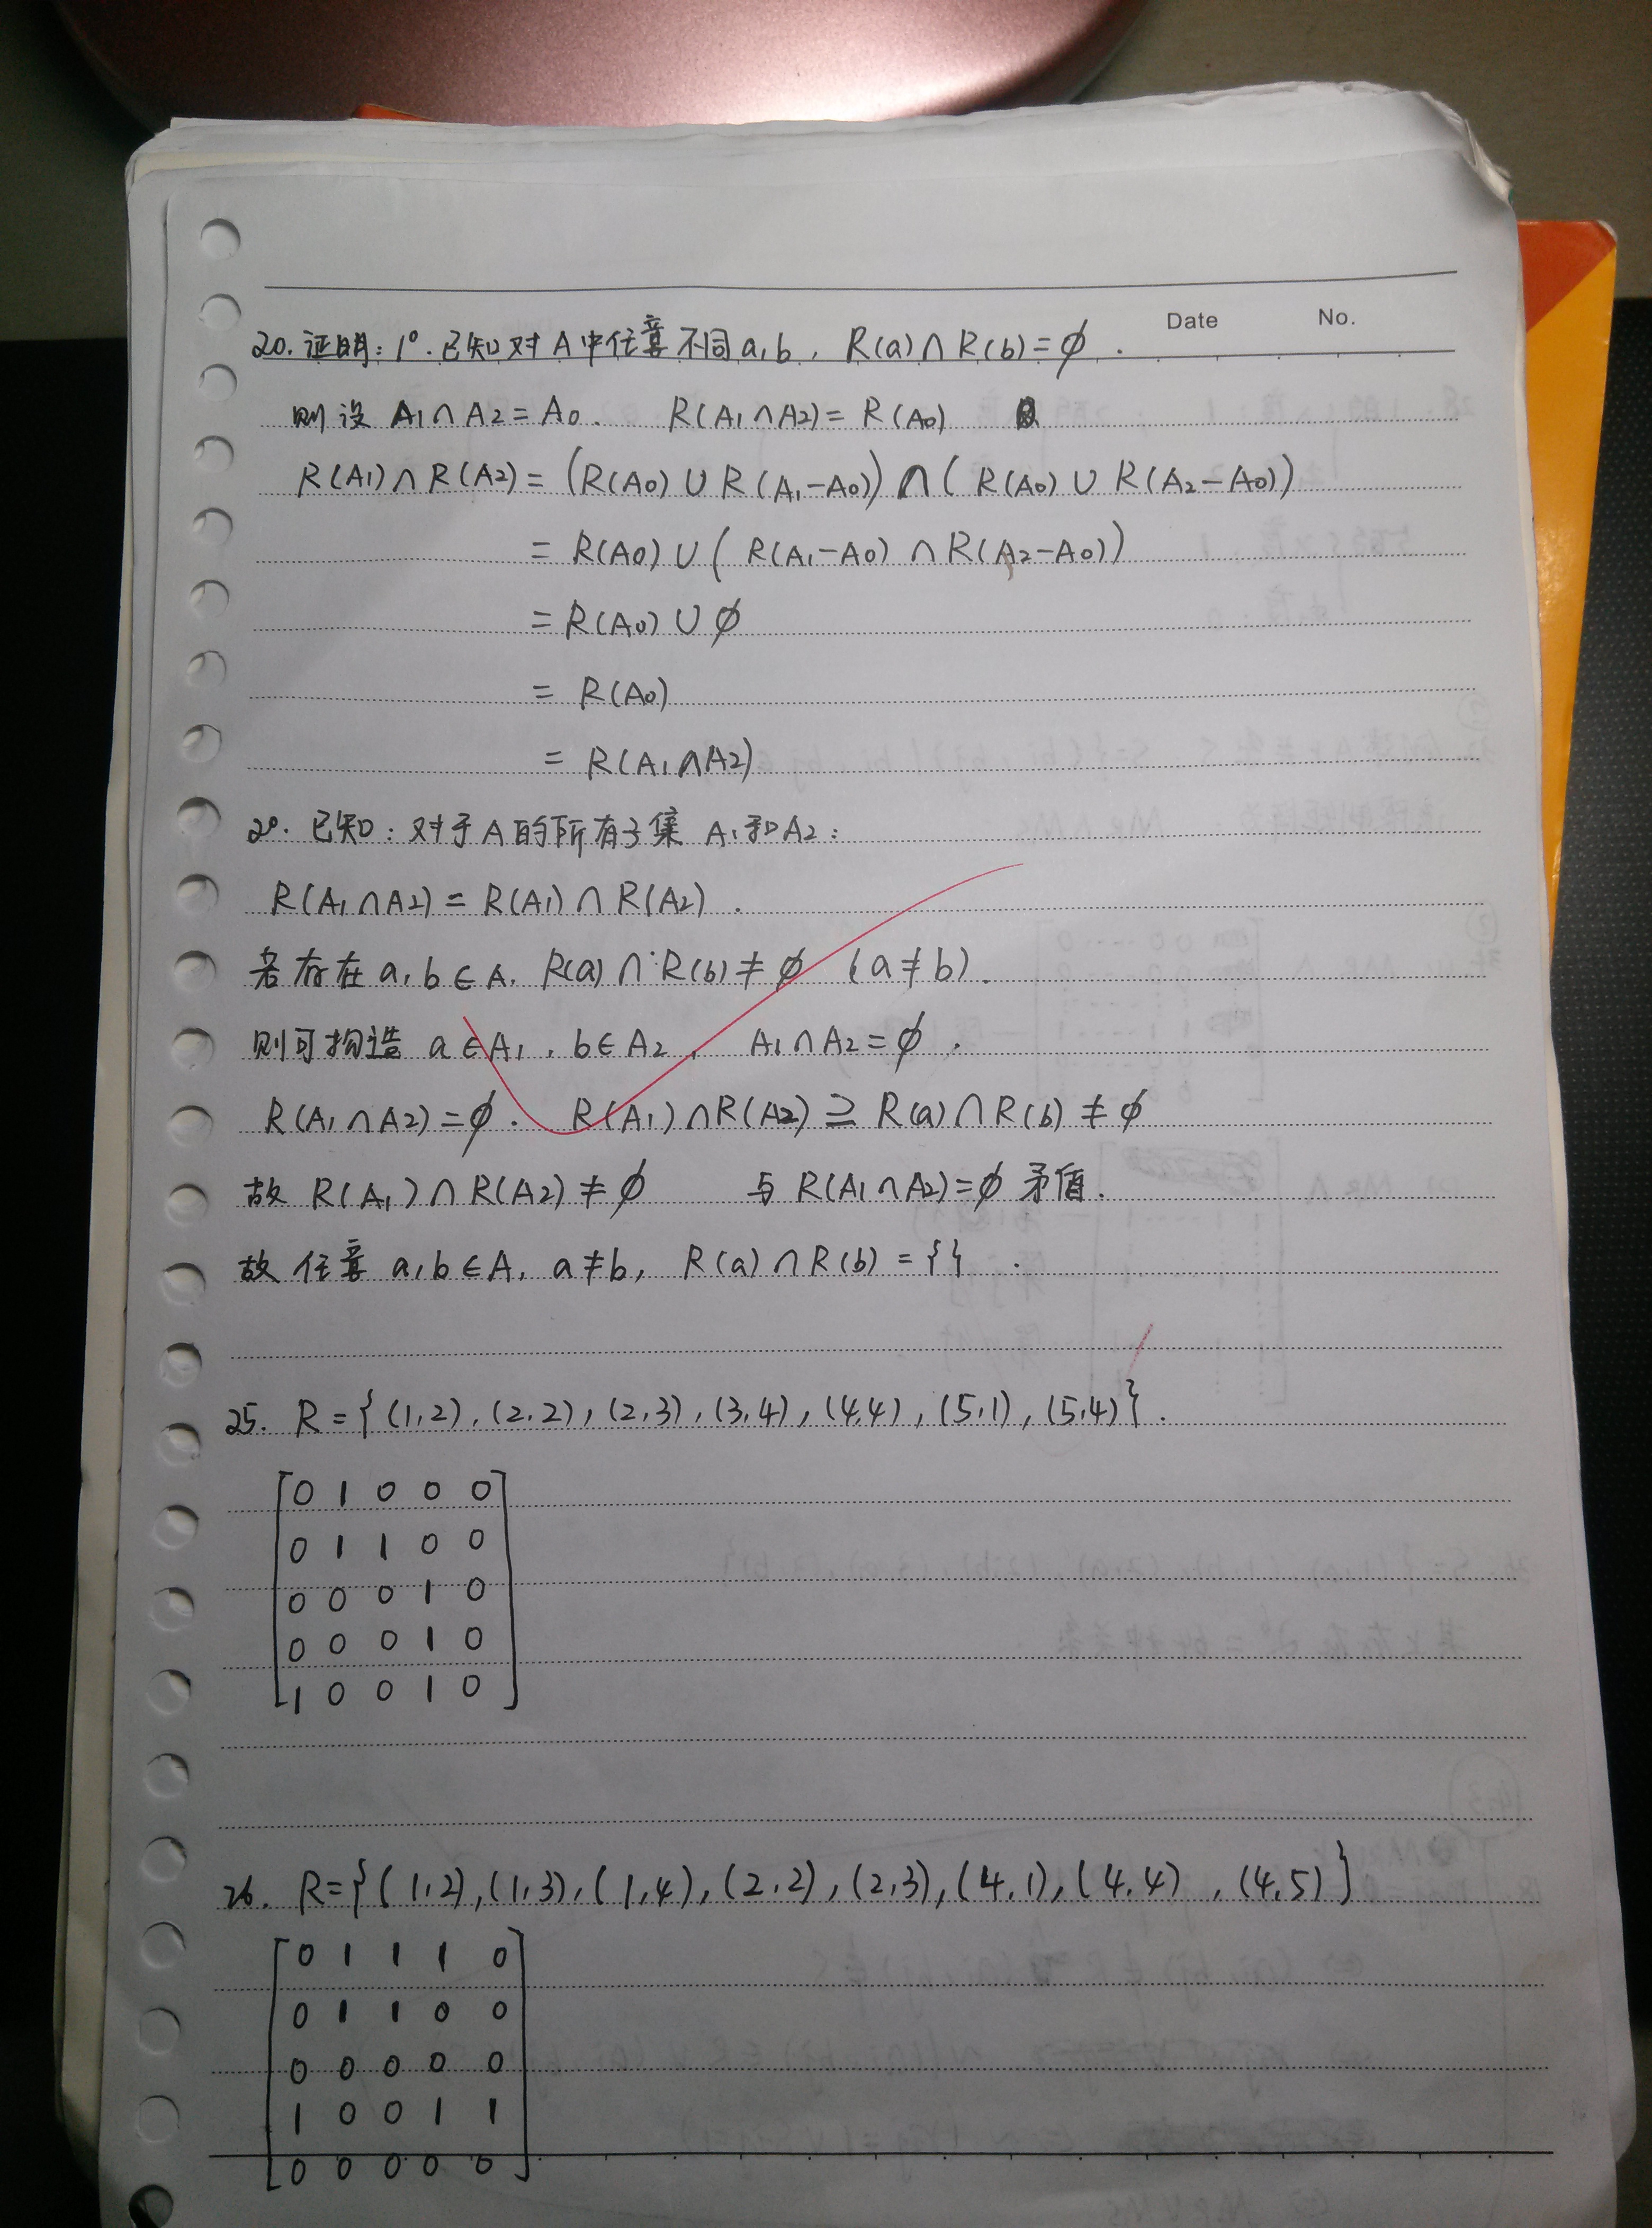 Date No.
20. 证明: 1°. 已知对A中任意不同a,b, R(a)∩R(b)=∅.
则设 A1∩A2=A0. R(A1∩A2)=R(A0)
R(A1)∩R(A2)=(R(A0)∪R(A1-A0))∩(R(A0)∪R(A2-A0))
=R(A0)∪(R(A1-A0)∩R(A2-A0))
=R(A0)∪∅
=R(A0)
=R(A1∩A2)
2°. 已知: 对于A的所有子集 A1和A2:
R(A1∩A2)=R(A1)∩R(A2).
若存在 a,b∈A, R(a)∩R(b)≠∅ (a≠b).
则可构造 a∈A1, b∈A2, A1∩A2=∅.
R(A1∩A2)=∅. R(A1)∩R(A2)⊇R(a)∩R(b)≠∅
故 R(A1)∩R(A2)≠∅ 与 R(A1∩A2)=∅ 矛盾.
故 任意 a,b∈A, a≠b, R(a)∩R(b)={}.
25. R={(1,2),(2,2),(2,3),(3,4),(4,4),(5,1),(5,4)}.
0 1 0 0 0
0 1 1 0 0
0 0 0 1 0
0 0 0 1 0
1 0 0 1 0
26. R={(1,2),(1,3),(1,4),(2,2),(2,3),(4,1),(4,4),(4,5)}
0 1 1 1 0
0 1 1 0 0
0 0 0 0 0
1 0 0 1 1
0 0 0 0 0